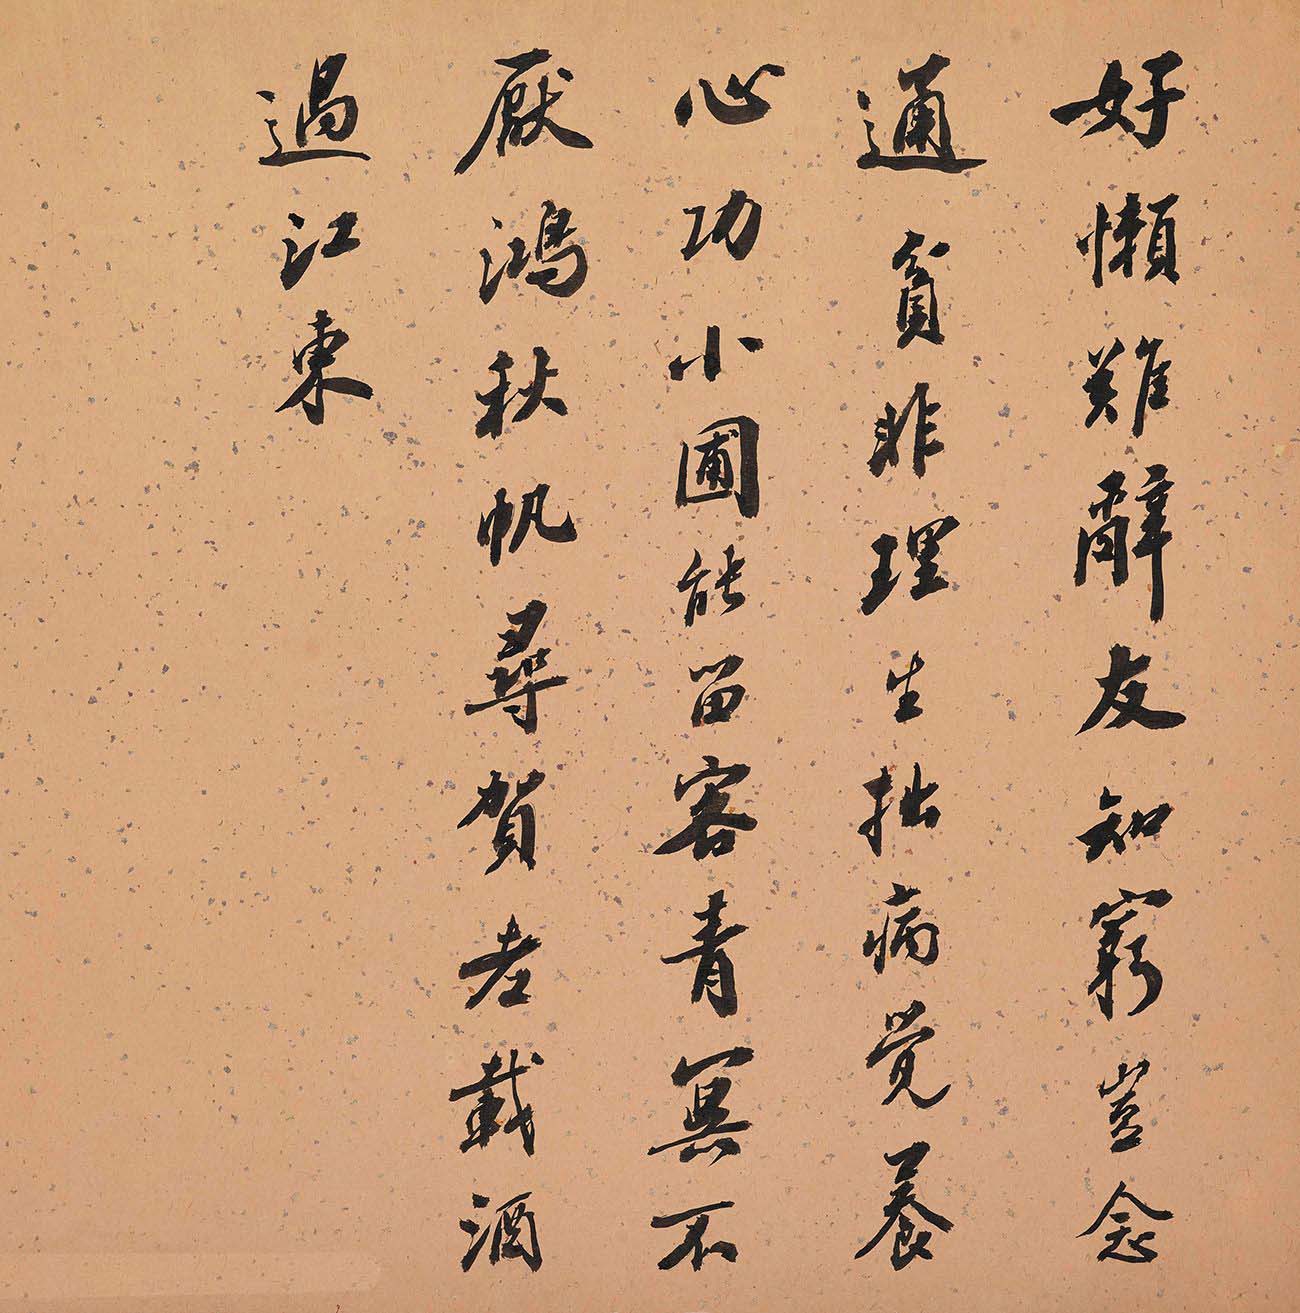 好懶難辭友知窮豈念
通貧非理生拙病覺養
心功小圃能留客青冥不
厭鴻秋帆尋賀老載酒
過江東